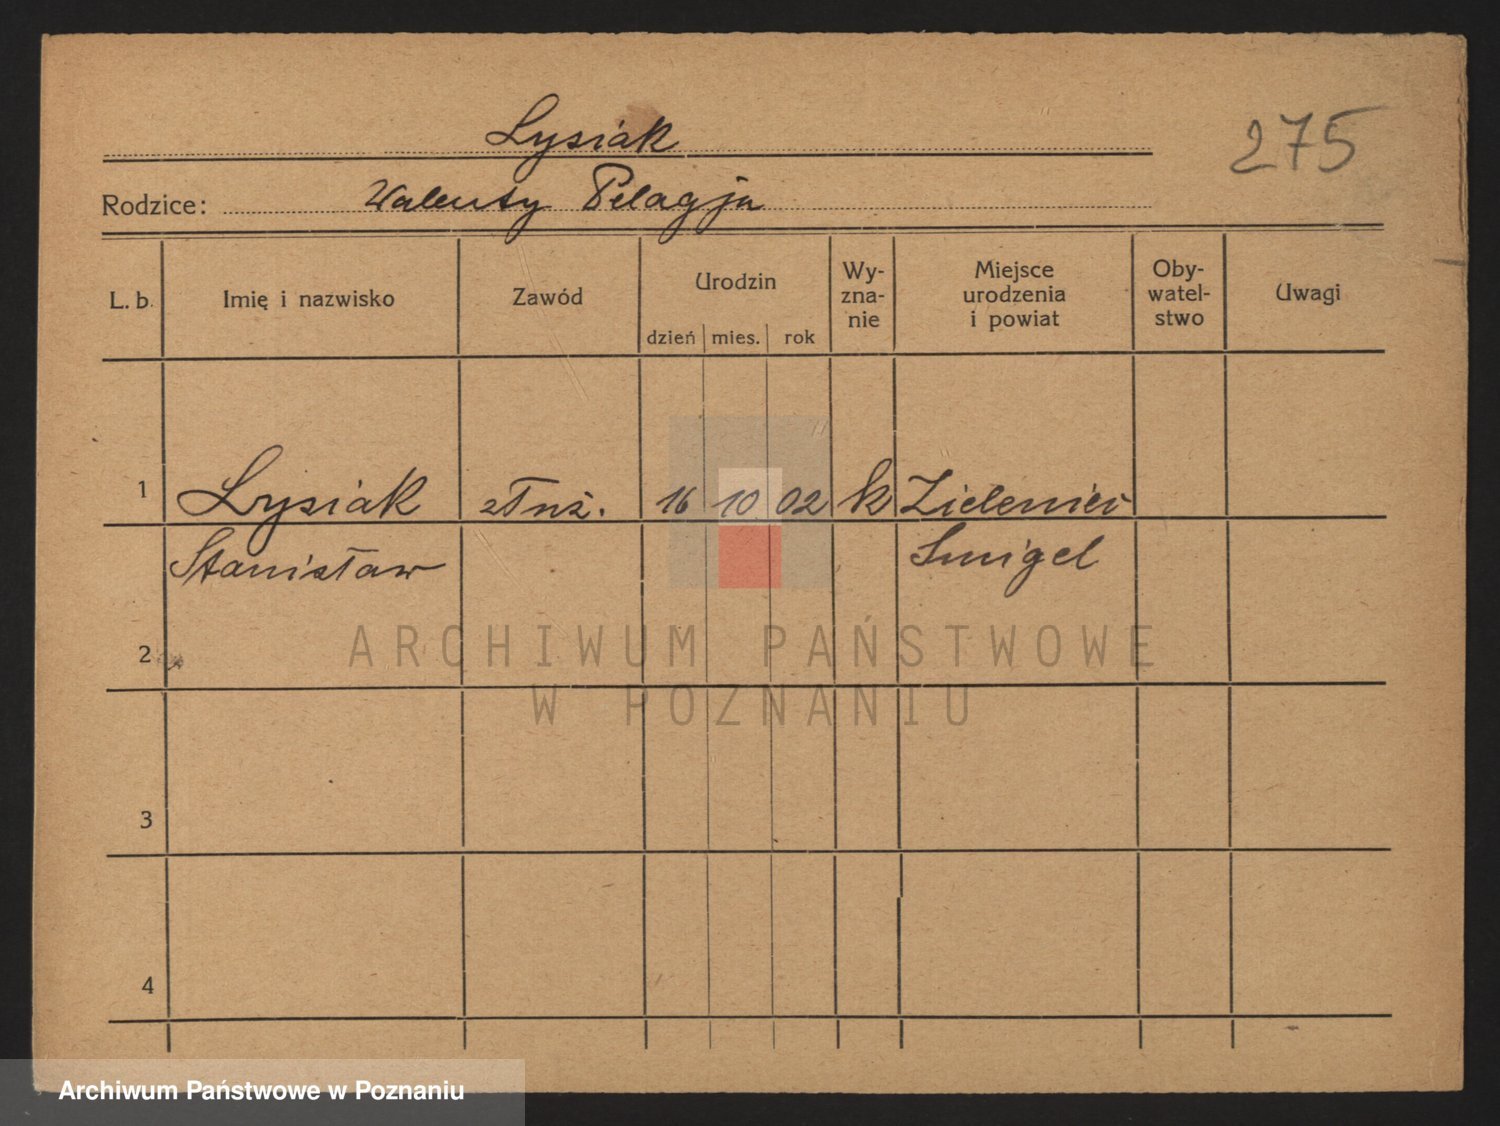 Lysiak
275
Rodzice: Walenty Pelagja
L. b. Imię i nazwisko Zawód Urodzin dzień mies. rok Wy-zna-nie Miejsce urodzenia i powiat Oby-watel-stwo Uwagi
1 Lysiak 16 10 02 k Zieleniec
Stanisław Smigel
2
3
4
ARCHIWUM PAŃSTWOWE
W POZNANIU
Archiwum Państwowe w Poznaniu